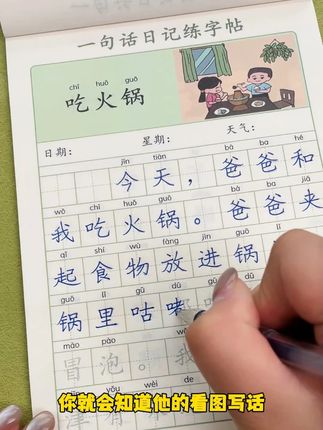 一句话日记练字帖
chī huǒ guō
吃火锅
日期： 星期： 天气：
jīn tiān bà ba hé
今天，爸爸和
wǒ chī huǒ guō bà ba jiā
我吃火锅。爸爸夹
qǐ shí wù fàng jìn guō
起食物放进锅
guō lǐ gū dū
锅里咕嘟
mào pào wǒ
冒泡。我
yǒu wèi de
津有
你就会知道他的看图写话